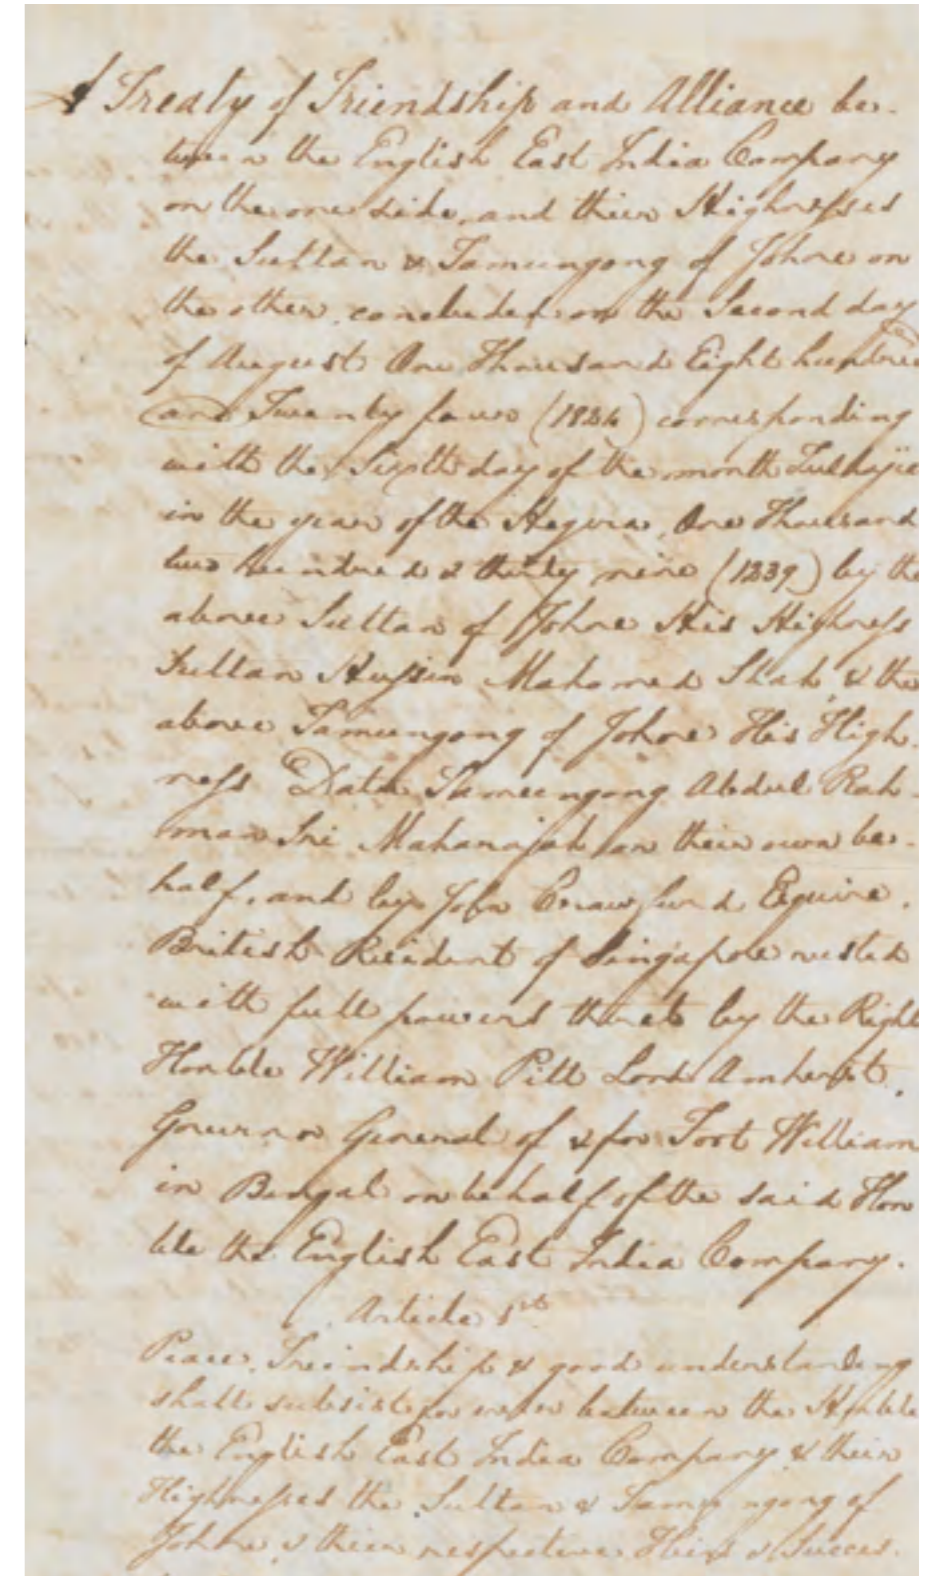 A Treaty of Friendship and Alliance be-
tween the English East India Company
on the one side, and their Highnesses
the Sultan & Tamungong of Johore on
the other, concluded on the Second day
of August One Thousand Eight hundred
and Twenty four (1824) corresponding
with the Sixth day of the month Zulhajie
in the year of the Hegira, One Thousand
two hundred & thirty nine (1239) by the
above Sultan of Johore His Highness
Sultan Hussin Mahomed Shah & the
above Tamungong of Johore His High-
ness Datu Tamungong Abdul Rah-
man Sri Maharajah on their own be-
half, and by John Crawfurd Esquire.
British Resident of Singapore vested
with full powers thereto by the Right
Honble William Pitt Lord Amherst,
Governor General of & for Fort William
in Bengal on behalf of the said Hon
ble the English East India Company.
Article 1st
Peace, Friendship & good understanding
shall subsist for ever between the Honble
the English East India Company & their
Highnesses the Sultan & Tamungong of
Johore & their respective Heirs & Succes-